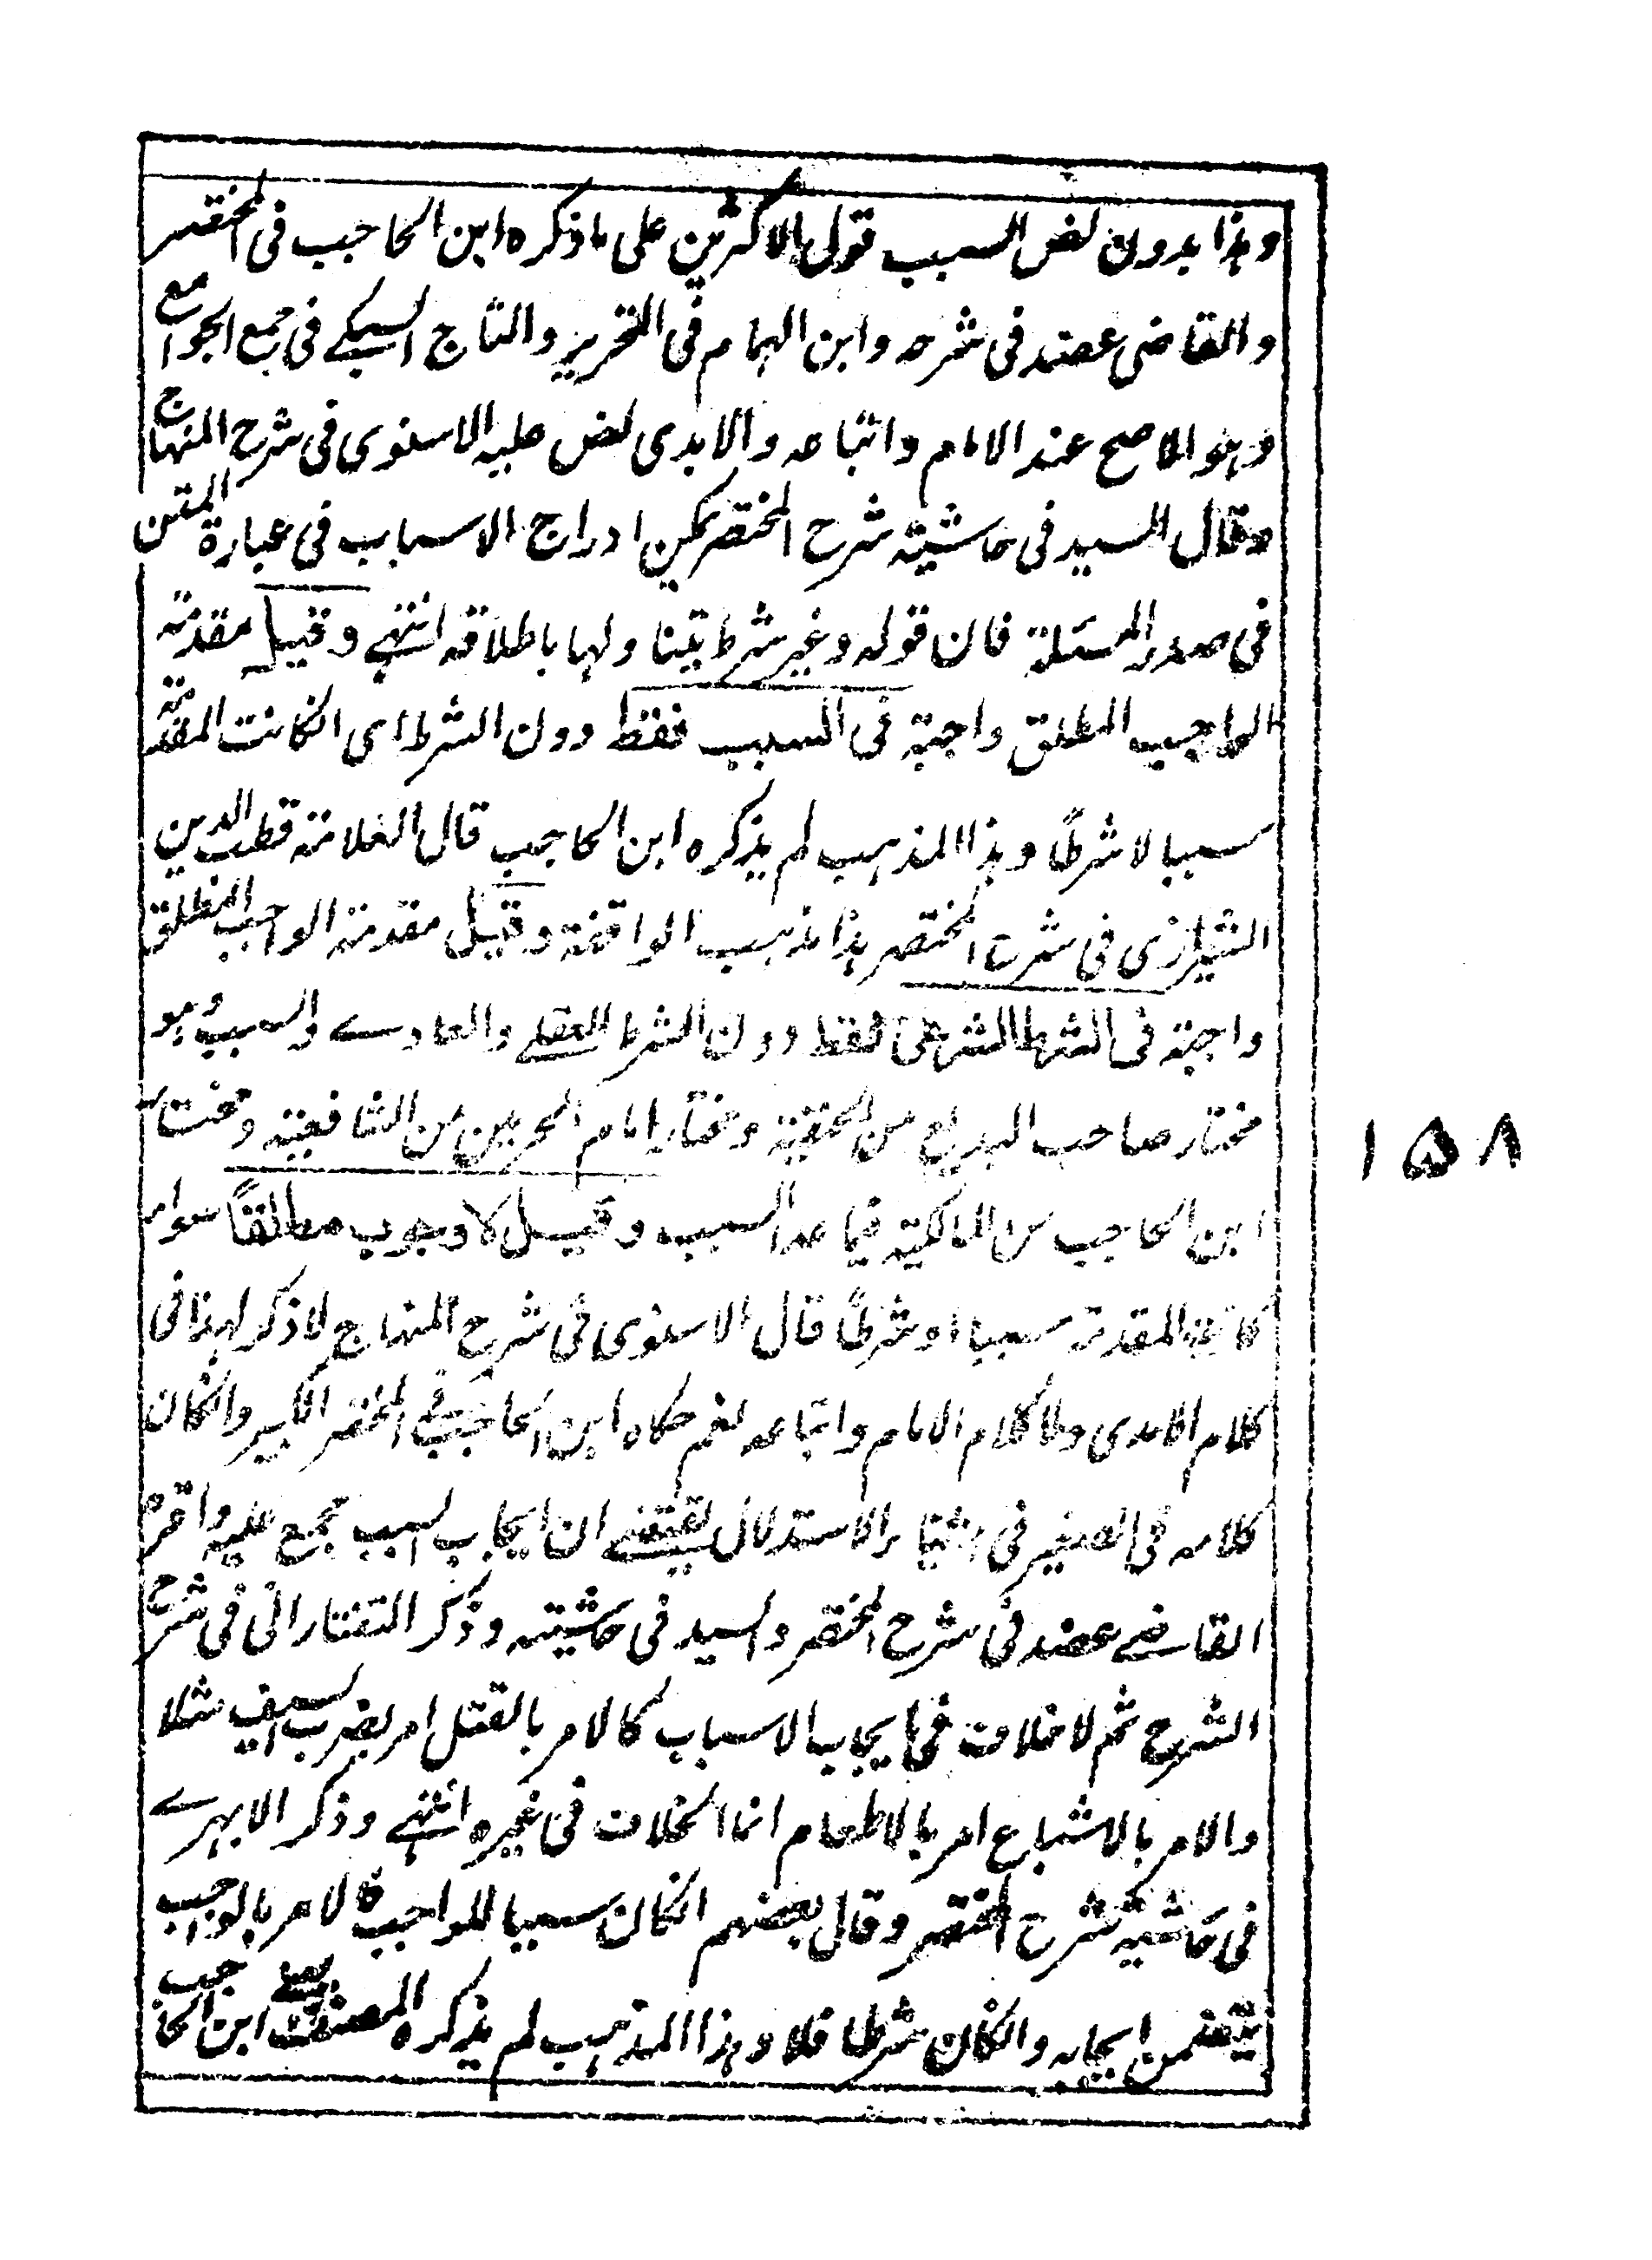 وهذا بدون لفض السبب قول الاكثرين على ما ذكره ابن الحاجب فى المختصر
والقاضى عضد فى شرحه وابن الهمام فى التحرير والتاج السبكے فى جمع الجوامع
وهو الاصح عند الامام واتباعه والامدى نص عليه الاسنوى فى شرح المنهاج
وقال السيد فى حاشيته شرح المختصر يمكن ادراج الاسباب فى عبارة المتن
فى صدر المسئلة فان قوله وغير شرط يتناولها باطلاقه انتهے وقيل مقدمة
الواجب المطلق واجبة فى السبب فقط دون الشرط اى انكانت المقدمة
سببا لا شرطًا وهذا المذهب لم يذكره ابن الحاجب قال العلامة قطب الدين
الشيرازى فى شرح المختصر هذا مذهب الواقفة وقيل مقدمة الواجب المطلق
واجبة فى الشرط الشرعى فقط دون الشرط العقلے والعادے والسبب وهو
مختار صاحب البديع من الحنفية ومختار امام الحرمين من الشافعية ومختار
ابن الحاجب من المالكية فيما عدا السبب وقيل لا وجوب مطلقًا سواء
كانت المقدمة سببا او شرطًا قال الاسنوى فى شرح المنهاج لا ذكر لهذا فى
كلام الامدى ولا كلام الامام واتباعه نعم حكاه ابن الحاجب فى المختصر الكبير وانكان
كلامه فى الصغير فى اثناء الاستدلال يقتضے ان ايجاب السبب مجمع عليه واقره
القاضے عضد فى شرح المختصر والسيد فى حاشيته وذكر التفتازانى فى شرح
الشرح ثم لا خلاف فى ايجاب الاسباب كالامر بالقتل امر بضرب السيف مثلا
والامر بالاشباع امر بالاطعام انما الخلاف فى غيره انتهے وذكر الابهرے
فى حاشية شرح المختصر وقال بعضهم انكان سببا للواجب فالامر بالواجب
يتضمن ايجابه وانكان شرطا فلا وهذا المذهب لم يذكره المصنف يعنے ابن الحاجب
١٥٨